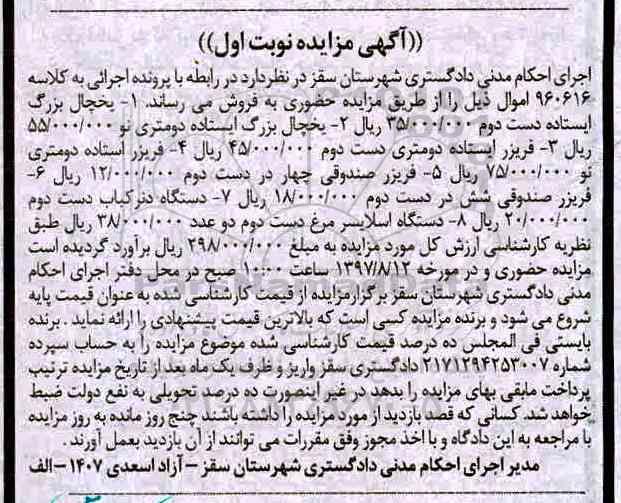 ((آگهی مزایده نوبت اول))
اجرای احکام مدنی دادگستری شهرستان سقز در نظر دارد در رابطه با پرونده اجرائی به کلاسه
۹۶۰۶۱۶ اموال ذیل را از طریق مزایده حضوری به فروش می رساند. ۱- یخچال بزرگ
ایستاده دست دوم ۳۵/۰۰۰/۰۰۰ ریال ۲- یخچال بزرگ ایستاده دومتری نو ۵۵/۰۰۰/۰۰۰
ریال ۳- فریزر ایستاده دومتری دست دوم ۴۵/۰۰۰/۰۰۰ ریال ۴- فریزر استاده دومتری
نو ۷۵/۰۰۰/۰۰۰ ریال ۵- فریزر صندوقی چهار در دست دوم ۱۲/۰۰۰/۰۰۰ ریال ۶-
فریزر صندوقی شش در دست دوم ۱۸/۰۰۰/۰۰۰ ریال ۷- دستگاه دنرکباب دست دوم
۲۰/۰۰۰/۰۰۰ ریال ۸- دستگاه اسلایسر مرغ دست دوم دو عدد ۳۸/۰۰۰/۰۰۰ ریال طبق
نظریه کارشناسی ارزش کل مورد مزایده به مبلغ ۲۹۸/۰۰۰/۰۰۰ ریال برآورد گردیده است
مزایده حضوری و در مورخه ۱۳۹۷/۸/۱۲ ساعت ۱۰:۰۰ صبح در محل دفتر اجرای احکام
مدنی دادگستری شهرستان سقز برگزار مزایده از قیمت کارشناسی شده به عنوان قیمت پایه
شروع می شود و برنده مزایده کسی است که بالاترین قیمت پیشنهادی را ارائه نماید . برنده
بایستی فی المجلس ده درصد قیمت کارشناسی شده موضوع مزایده را به حساب سپرده
شماره ۲۱۷۱۲۹۴۲۵۳۰۰۷ دادگستری سقز واریز و ظرف یک ماه بعد از تاریخ مزایده ترتیب
پرداخت مابقی بهای مزایده را بدهد در غیر اینصورت ده درصد تحویلی به نفع دولت ضبط
خواهد شد. کسانی که قصد بازدید از مورد مزایده را داشته باشند چنج روز مانده به روز مزایده
با مراجعه به این دادگاه و با اخذ مجوز وفق مقررات می توانند از آن بازدید بعمل آورند.
مدیر اجرای احکام مدنی دادگستری شهرستان سقز – آزاد اسعدی ۱۴۰۷ –الف